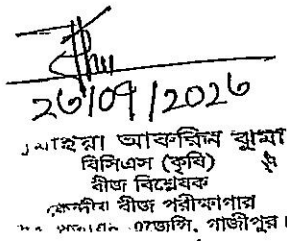 26/09/2026
আফরিন ঝুমা
বিসিএস (কৃষি)
বীজ বিশ্লেষক
কেন্দ্রীয় বীজ পরীক্ষাগার
এজেন্সি, গাজীপুর।